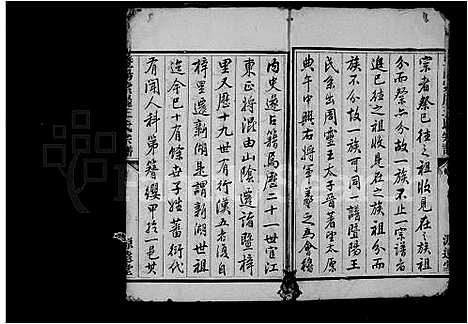 宗者祭已往之祖收見在之族祖
分而祭亦分一族不止一宗譜者
追已往之祖收見在之族祖分而
族不分故一族可同一譜暨陽王
氏系出周靈王太子晉著望太原
典午中興右將軍羲之為會稽
內史遂占籍焉歷二十一世宦江
東正將混由山陰遷諸暨梓
里又歷十九世有行漢五者復自
梓里遷新湖是謂新湖世祖
迄今已十有餘世子姓蕃衍代
有聞人科第簪纓甲於一邑其